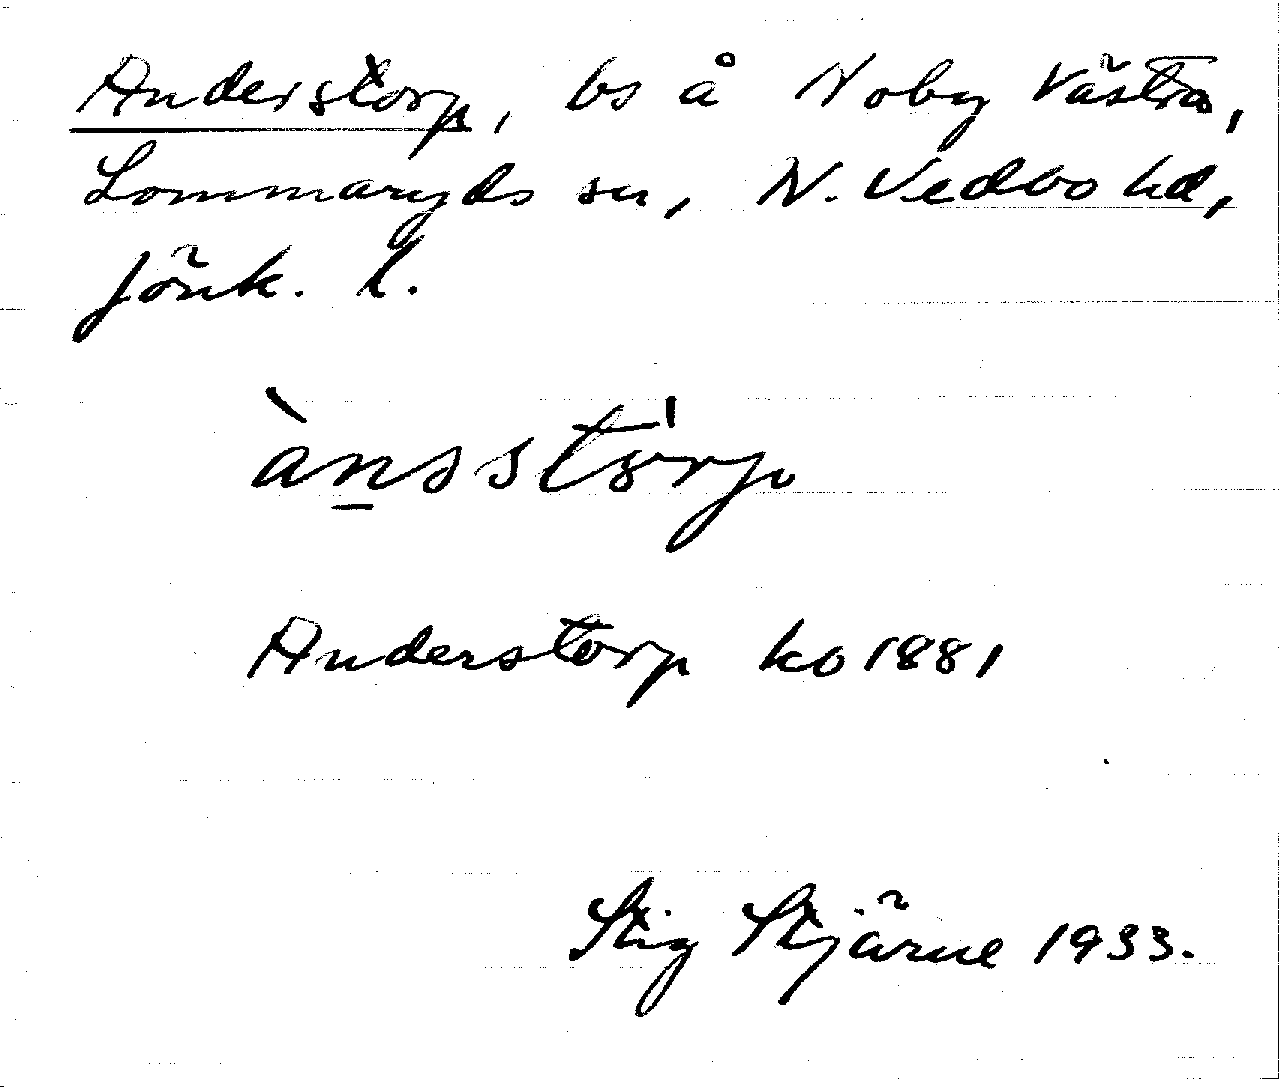 Anderstorp, bs å Noby Västra,
Lommaryds sn, N. Vedbo hd,
Jönk. l.
ànsstórp
Anderstorp ko 1881
Stig Stjärne 1933.